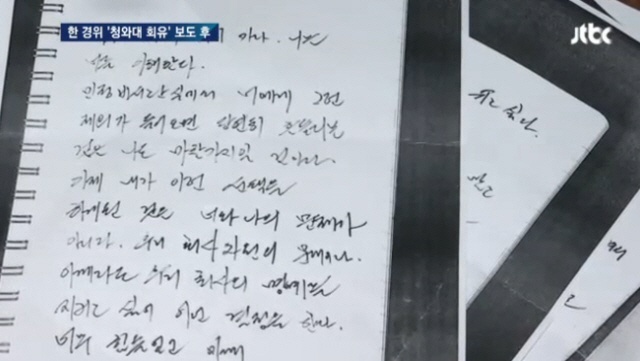 한 경위 '청와대 회유' 보도 후
jtbc
이해한다.
민정비서관실에서 너에게 그런
제의가 들어오면 당연히 흔들리는
것은 나도 마찬가지일 것이다.
이제 내가 이런 선택을
하게된 것은 너와 나의 문제가
아니다. 우리 회사 차원의 문제이나.
이제라도 우리 회사의 명예를
지키고 싶어 이런 결정을 한다.
너무 힘들었고 이제
싶다.